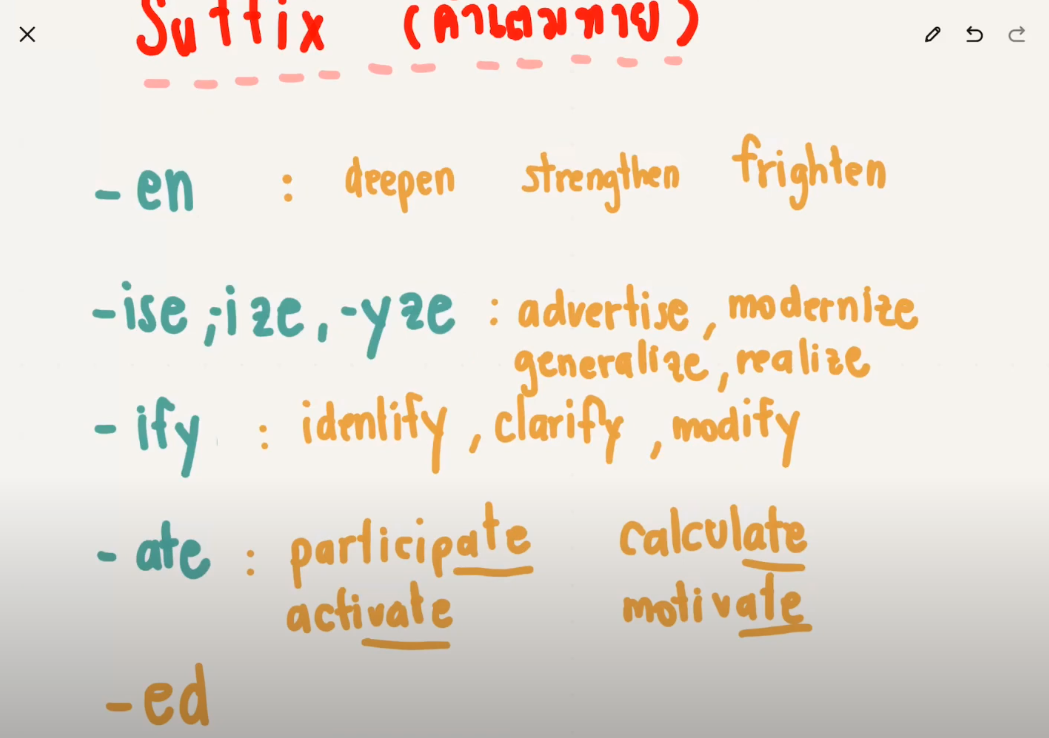 Suffix (คำเติมท้าย)
- en : deepen strengthen frighten
-ise ,-ize , -yze : advertise , modernize
generalize , realize
- ify : identify , clarify , modify
- ate : participate calculate
activate motivate
- ed